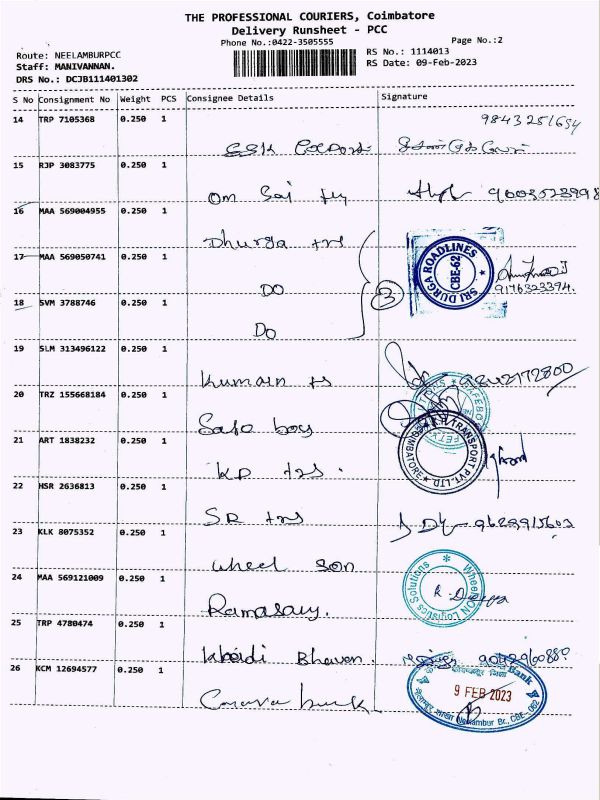 THE PROFESSIONAL COURIERS, Coimbatore
Delivery Runsheet - PCC
Phone No.:0422-3505555
Page No.:2
Route: NEELAMBURPCC
RS No.: 1114013
Staff: MANIVANNAN.
RS Date: 09-Feb-2023
DRS No.: DCJB111401302
S No Consignment No Weight PCS Consignee Details Signature
14 TRP 7105368 0.250 1
9843251654
15 RJP 3083775 0.250 1
Om Sai
16 MAA 569004955 0.250 1
Dhurga trs
17 MAA 569050741 0.250 1
DO
SRI DURGA ROADLINES
CBE-62
9176323394.
18 SVM 3788746 0.250 1
DO
3
19 SLM 313496122 0.250 1
20 TRZ 155668184 0.250 1
21 ART 1838232 0.250 1
KP trs.
TRANSPORT PVT. LTD
COIMBATORE
22 HSR 2636813 0.250 1
SR trs
23 KLK 8075352 0.250 1
Wheel Son
WheelSON Logistics Solutions
24 MAA 569121009 0.250 1
Ramasamy.
25 TRP 4780474 0.250 1
Bhavan.
26 KCM 12694577 0.250 1
Bank
9 FEB 2023
Neelambur Br., CBE-062